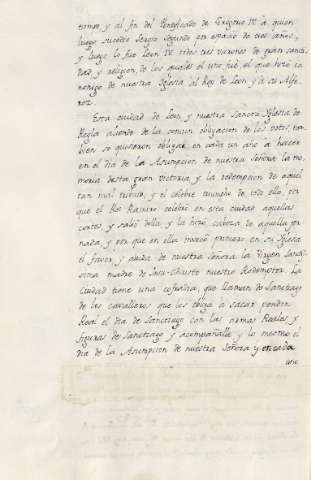 tamos, y al fin del Pontificado de Gregorio IV a quien
luego sucedio Sergio Segundo por espacio de tres años,
y luego lo fue Leon IV todos tres varones de gran santi
dad y religion, de los quales el uno fué, el que hizo ca
nonigo de nuestra Iglesia al Rey de Leon y a su Alfe
rez.
Esta ciudad de Leon, y nuestra Sancta Iglesia de
Regla aliende de la comun obligacion de los votos, tam
bien se quisieron obligar en cada un año a hacer
en el dia de la Asumpcion de nuestra Señora la me
moria desta gran victoria, y la redempcion de aquel
tan mal tributo, y el celebre triunpho de todo ello, por
que el Rei Ramiro celebró en esta ciudad aquellas
cortes y salió della, y la hizo cabeza de aquella jor
nada, y por que en ella mereció primero en su Iglesia
el favor, y aiuda de nuestra Señora la Virgen Sanctis
sima madre de Jesu-Christo nuestro Redemptor. La
Ciudad tiene una cofradia, que llaman de Sanctiago
de los cavalleros que los obliga a sacar pendon
Real el dia de Sanctiago con las armas Reales, y
figuras de Sanctiago y acompañalle, y lo mesmo el
dia de la Asumpcion de nuestra Señora y en cada
un